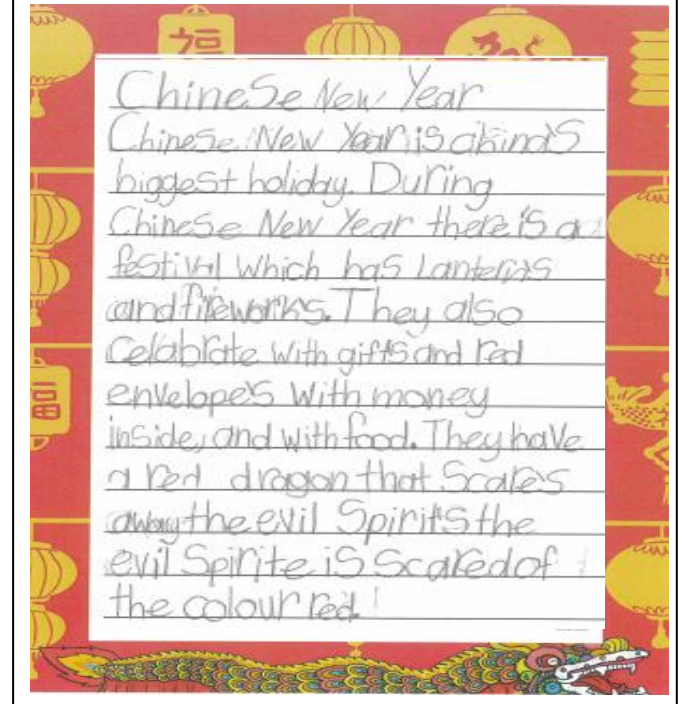 福
Chinese New Year
Chinese New Year is akind's
biggest holiday. During
Chinese New Year there is a
festival which has Lanterns
and fireworks. They also
Celabrate with gifts and red
envelope's with money
inside, and with food. They have
a red dragon that Scares
away the evil Spirit's the
evil Spirite is Scared of
the colour red.
福